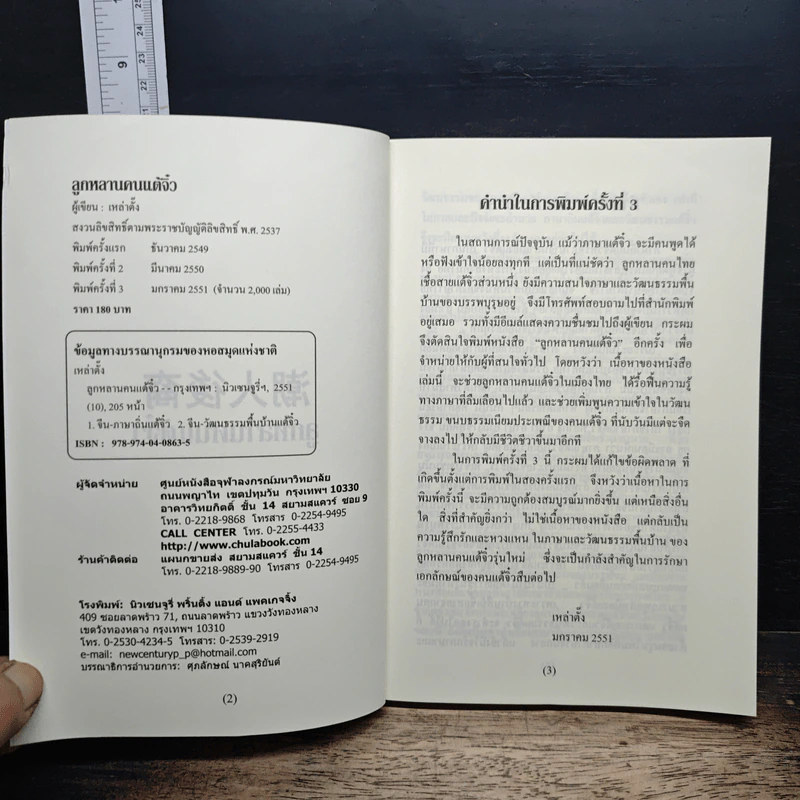 ลูกหลานคนแต้จิ๋ว
ผู้เขียน : เหล่าตั๊ง
สงวนลิขสิทธิ์ตามพระราชบัญญัติลิขสิทธิ์ พ.ศ. 2537
พิมพ์ครั้งแรก ธันวาคม 2549
พิมพ์ครั้งที่ 2 มีนาคม 2550
พิมพ์ครั้งที่ 3 มกราคม 2551 (จำนวน 2,000 เล่ม)
ราคา 180 บาท
ข้อมูลทางบรรณานุกรมของหอสมุดแห่งชาติ
เหล่าตั๊ง
ลูกหลานคนแต้จิ๋ว - - กรุงเทพฯ : นิวเซนจูรี่ฯ, 2551
(10), 205 หน้า
1. จีน-ภาษาถิ่นแต้จิ๋ว 2. จีน-วัฒนธรรมพื้นบ้านแต้จิ๋ว
ISBN : 978-974-04-0863-5
ผู้จัดจำหน่าย ศูนย์หนังสือจุฬาลงกรณ์มหาวิทยาลัย
ถนนพญาไท เขตปทุมวัน กรุงเทพฯ 10330
อาคารวิทยกิตติ์ ชั้น 14 สยามสแควร์ ซอย 9
โทร. 0-2218-9868 โทรสาร 0-2254-9495
CALL CENTER โทร. 0-2255-4433
http://www.chulabook.com
ร้านค้าติดต่อ แผนกขายส่ง สยามสแควร์ ชั้น 14
โทร. 0-2218-9889-90 โทรสาร 0-2254-9495
โรงพิมพ์: นิวเซนจูรี่ พริ้นติ้ง แอนด์ แพคเกจจิ้ง
409 ซอยลาดพร้าว 71, ถนนลาดพร้าว แขวงวังทองหลาง
เขตวังทองหลาง กรุงเทพฯ 10310
โทร. 0-2530-4234-5 โทรสาร: 0-2539-2919
e-mail: newcenturyp_p@hotmail.com
บรรณาธิการอำนวยการ: ศุภลักษณ์ นาคสุริยันต์
(2)
คำนำในการพิมพ์ครั้งที่ 3
ในสถานการณ์ปัจจุบัน แม้ว่าภาษาแต้จิ๋ว จะมีคนพูดได้
หรือฟังเข้าใจน้อยลงทุกที แต่เป็นที่แน่ชัดว่า ลูกหลานคนไทย
เชื้อสายแต้จิ๋วส่วนหนึ่ง ยังมีความสนใจภาษาและวัฒนธรรมพื้น
บ้านของบรรพบุรุษอยู่ จึงมีโทรศัพท์สอบถามไปที่สำนักพิมพ์
อยู่เสมอ รวมทั้งมีอีเมล์แสดงความชื่นชมไปถึงผู้เขียน กระผม
จึงตัดสินใจพิมพ์หนังสือ “ลูกหลานคนแต้จิ๋ว” อีกครั้ง เพื่อ
จำหน่ายให้กับผู้ที่สนใจทั่วไป โดยหวังว่า เนื้อหาของหนังสือ
เล่มนี้ จะช่วยลูกหลานคนแต้จิ๋วในเมืองไทย ได้รื้อฟื้นความรู้
ทางภาษาที่ลืมเลือนไปแล้ว และช่วยเพิ่มพูนความเข้าใจในวัฒน
ธรรม ขนบธรรมเนียมประเพณีของคนแต้จิ๋ว ที่นับวันมีแต่จะจืด
จางลงไป ให้กลับมีชีวิตชีวาขึ้นมาอีกที
ในการพิมพ์ครั้งที่ 3 นี้ กระผมได้แก้ไขข้อผิดพลาด ที่
เกิดขึ้นตั้งแต่การพิมพ์ในสองครั้งแรก จึงหวังว่าเนื้อหาในการ
พิมพ์ครั้งนี้ จะมีความถูกต้องสมบูรณ์มากยิ่งขึ้น แต่เหนือสิ่งอื่น
ใด สิ่งที่สำคัญยิ่งกว่า ไม่ใช่เนื้อหาของหนังสือ แต่กลับเป็น
ความรู้สึกรักและหวงแหน ในภาษาและวัฒนธรรมพื้นบ้าน ของ
ลูกหลานคนแต้จิ๋วรุ่นใหม่ ซึ่งจะเป็นกำลังสำคัญในการรักษา
เอกลักษณ์ของคนแต้จิ๋วสืบต่อไป
เหล่าตั๊ง
มกราคม 2551
(3)